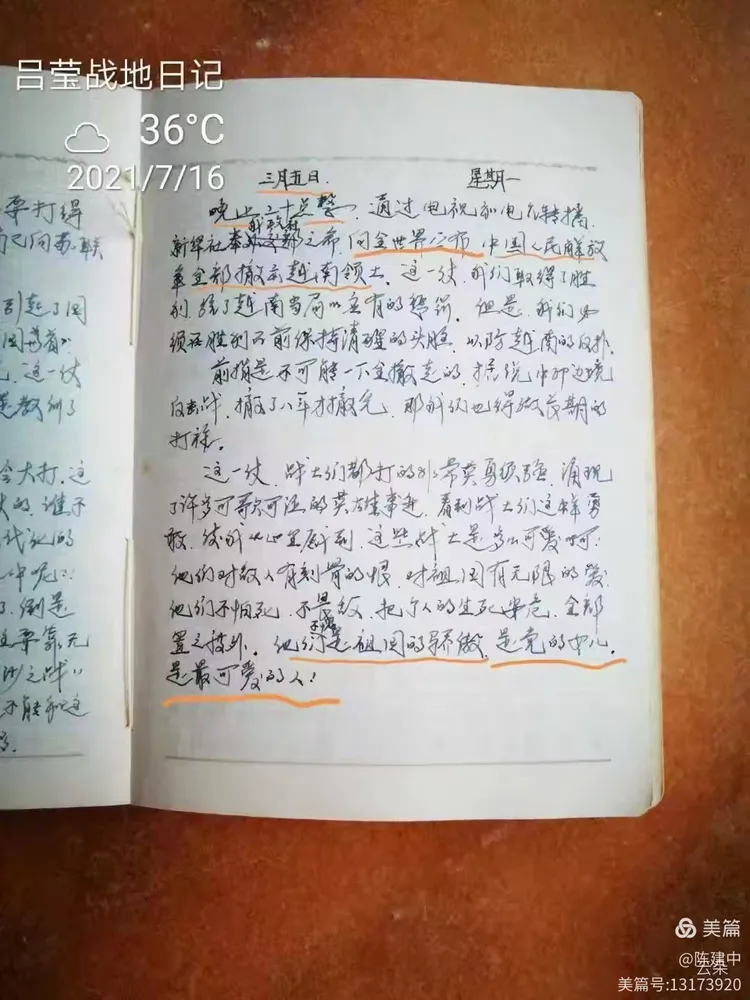 吕莹战地日记
36°C
2021/7/16
三月五日 星期一
晚上二十点整,通过电视和电台转播,
新华社奉政府之命,向全世界公布 中国人民解放
军全部撤出越南领土。这一仗,我们取得了胜
利,给了越南当局以应有的惩罚。但是,我们必
须在胜利面前保持清醒的头脑,以防越南的反扑。
前指是不可能一下全撤走的,据说中印边境
反击战,撤了八年才撤完,那我们也得做长期的
打祘。
这一仗,战士们都打的非常英勇顽强,涌现
了许多可歌可泣的英雄事迹,看到战士们这样勇
敢,使我从心里感到,这些战士是多么可爱呵!
他们对敌人有刻骨的恨,对祖国有无限的爱,
他们不怕死,不畏敌,把个人的生死安危,全部
置之度外。他们不愧是祖国的骄傲,是党的好儿,
是最可爱的人!
要打得
自己向苏联
引起了国
这一仗
是教训了
会大打,这
的,谁不
代死的
中呢
了,倒是
要靠无
沙之战"
不能和这
美篇
@陈建中
云朵
美篇号:13173920